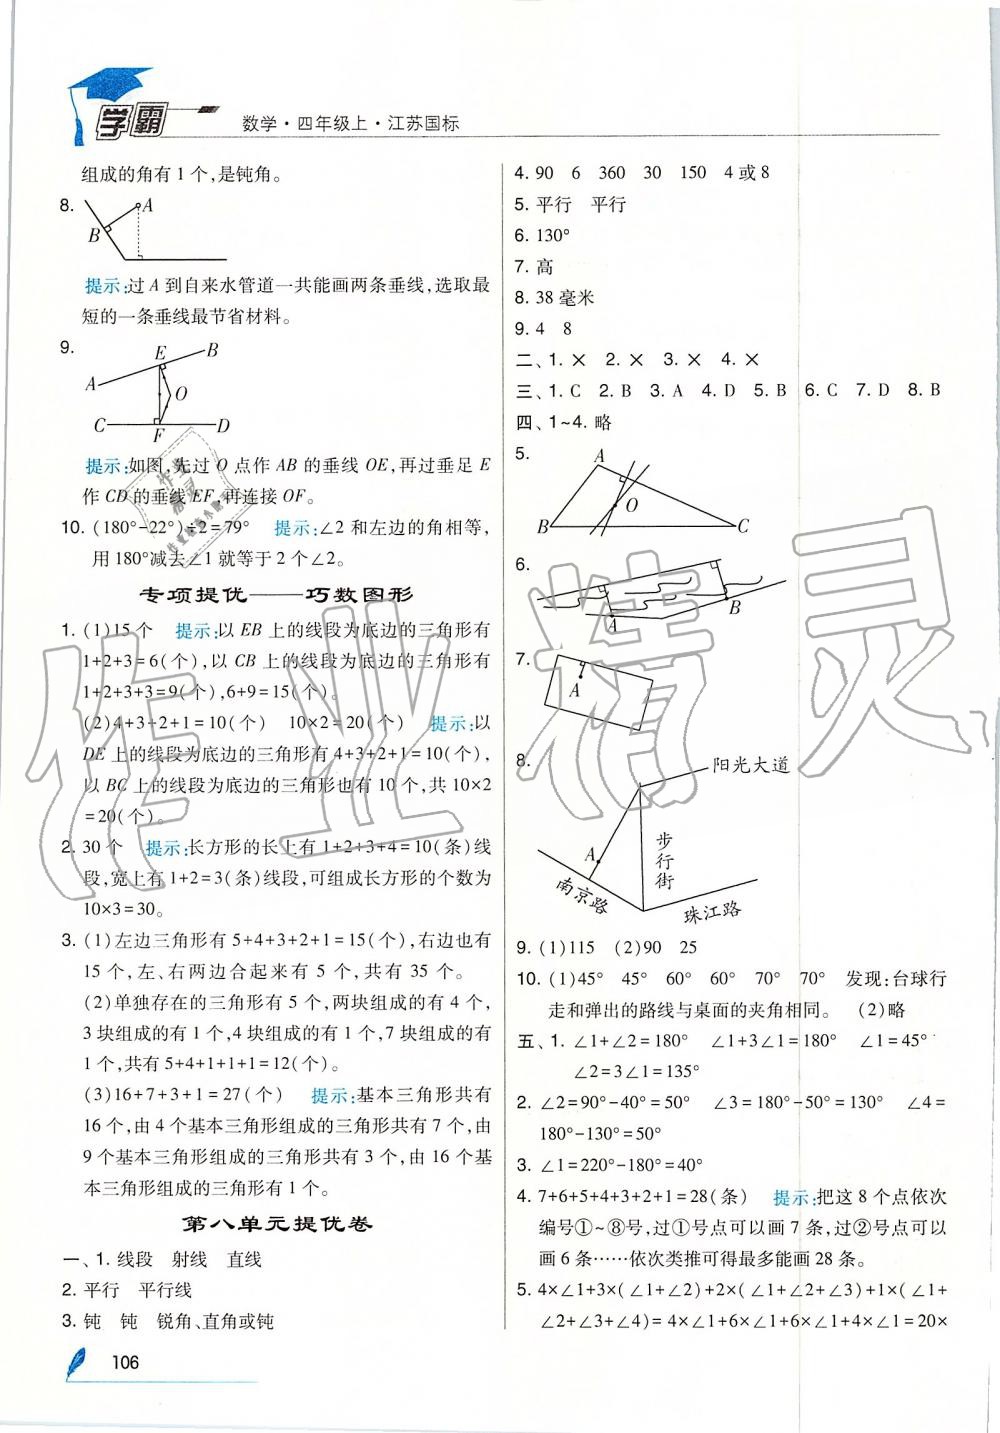 学霸
数学·四年级上·江苏国标
组成的角有1个,是钝角。
8.
A
B
提示:过A到自来水管道一共能画两条垂线,选取最
短的一条垂线最节省材料。
9.
E
B
A
O
C
F
D
提示:如图,先过O点作AB的垂线OE,再过垂足E
作CD的垂线EF,再连接OF。
10. (180°-22°)÷2=79° 提示:∠2和左边的角相等,
用180°减去∠1就等于2个∠2。
专项提优——巧数图形
1. (1)15个 提示:以EB上的线段为底边的三角形有
1+2+3=6(个),以CB上的线段为底边的三角形有
1+2+3+3=9(个),6+9=15(个)。
(2)4+3+2+1=10(个) 10×2=20(个) 提示:以
DE上的线段为底边的三角形有4+3+2+1=10(个),
以BC上的线段为底边的三角形也有10个,共10×2
=20(个)。
2. 30个 提示:长方形的长上有1+2+3+4=10(条)线
段,宽上有1+2=3(条)线段,可组成长方形的个数为
10×3=30。
3. (1)左边三角形有5+4+3+2+1=15(个),右边也有
15个,左、右两边合起来有5个,共有35个。
(2)单独存在的三角形有5个,两块组成的有4个,
3块组成的有1个,4块组成的有1个,7块组成的有
1个,共有5+4+1+1+1=12(个)。
(3)16+7+3+1=27(个) 提示:基本三角形共有
16个,由4个基本三角形组成的三角形共有7个,由
9个基本三角形组成的三角形共有3个,由16个基
本三角形组成的三角形有1个。
第八单元提优卷
一、1. 线段 射线 直线
2. 平行 平行线
3. 钝 钝 锐角、直角或钝
106
4. 90 6 360 30 150 4或8
5. 平行 平行
6. 130°
7. 高
8. 38毫米
9. 4 8
二、1. × 2. × 3. × 4. ×
三、1. C 2. B 3. A 4. D 5. B 6. C 7. D 8. B
四、1~4. 略
5.
A
O
B
C
6.
A
B
7.
A
8.
阳光大道
步行街
A
南京路
珠江路
9. (1)115 (2)90 25
10. (1)45° 45° 60° 60° 70° 70° 发现:台球行
走和弹出的路线与桌面的夹角相同。 (2)略
五、1. ∠1+∠2=180° ∠1+3∠1=180° ∠1=45°
∠2=3∠1=135°
2. ∠2=90°-40°=50° ∠3=180°-50°=130° ∠4=
180°-130°=50°
3. ∠1=220°-180°=40°
4. 7+6+5+4+3+2+1=28(条) 提示:把这8个点依次
编号①~⑧号,过①号点可以画7条,过②号点可以
画6条……依次类推可得最多能画28条。
5. 4×∠1+3×(∠1+∠2)+2×(∠1+∠2+∠3)+1×(∠1+
∠2+∠3+∠4)= 4×∠1+6×∠1+6×∠1+4×∠1=20×
作业精灵